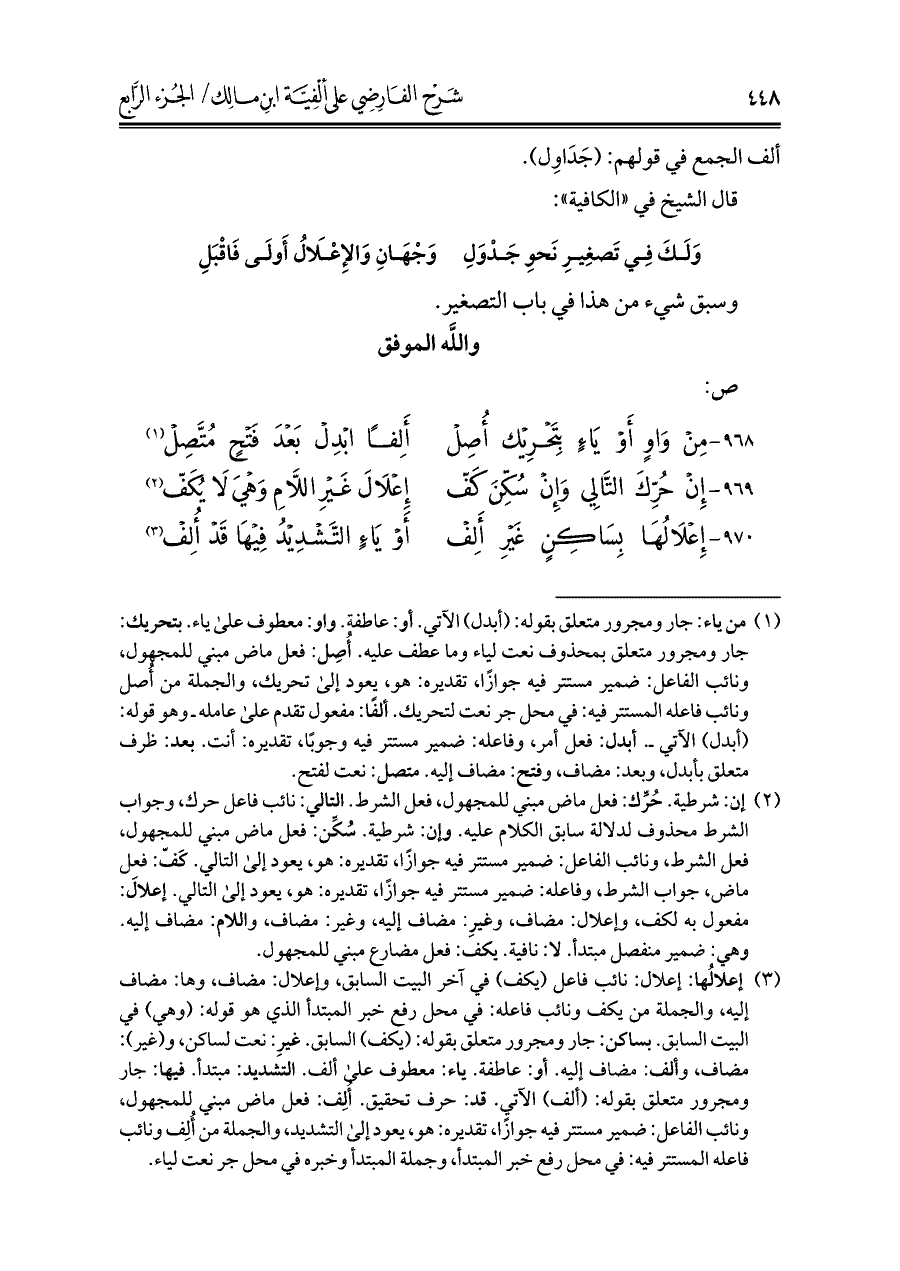 ٤٤٨ شَرْح الفَارِضِي على ألفِيَّة ابن مالِك/ الجُزء الرَّابع
ألف الجمع في قولهم: (جَدَاوِل).
قال الشيخ في «الكافية»:
وَلَـكَ فِـي تَصغِيـرِ نَحوِ جَـدْوَلِ وَجْهَـانِ وَالإِعْـلَالُ أَولَـى فَاقْبَلِ
وسبق شيء من هذا في باب التصغير.
واللَّه الموفق
ص:
٩٦٨-مِنْ وَاوٍ أَوْ يَاءٍ بِتَحْرِيْكِ أُصِلْ أَلِفًا ابْدِلْ بَعْدَ فَتْحٍ مُتَّصِلْ(١)
٩٦٩-إِنْ حُرِّكَ التَّالِي وَإِنْ سُكِّنَ كَفّ إِعْلَالَ غَيْرِ اللَّامِ وَهْيَ لَا يُكَفّ(٢)
٩٧٠-إِعْلَالُهَا بِسَاكِنٍ غَيْرِ أَلِفْ أَوْ يَاءٍ التَّشْدِيْدُ فِيْهَا قَدْ أُلِفْ(٣)
(١) من ياء: جار ومجرور متعلق بقوله: (أبدل) الآتي. أو: عاطفة. واو: معطوف علىٰ ياء. بتحريك:
جار ومجرور متعلق بمحذوف نعت لياء وما عطف عليه. أُصِل: فعل ماض مبني للمجهول،
ونائب الفاعل: ضمير مستتر فيه جوازًا، تقديره: هو، يعود إلىٰ تحريك، والجملة من أُصل
ونائب فاعله المستتر فيه: في محل جر نعت لتحريك. ألفًا: مفعول تقدم علىٰ عامله ـ وهو قوله:
(أبدل) الآتي ـ. أبدل: فعل أمر، وفاعله: ضمير مستتر فيه وجوبًا، تقديره: أنت. بعد: ظرف
متعلق بأبدل، وبعد: مضاف، وفتح: مضاف إليه. متصل: نعت لفتح.
(٢) إن: شرطية. حُرِّك: فعل ماض مبني للمجهول، فعل الشرط. التالي: نائب فاعل حرك، وجواب
الشرط محذوف لدلالة سابق الكلام عليه. وإن: شرطية. سُكِّن: فعل ماض مبني للمجهول،
فعل الشرط، ونائب الفاعل: ضمير مستتر فيه جوازًا، تقديره: هو، يعود إلىٰ التالي. كَفّ: فعل
ماض، جواب الشرط، وفاعله: ضمير مستتر فيه جوازًا، تقديره: هو، يعود إلىٰ التالي. إعلالَ:
مفعول به لكف، وإعلال: مضاف، وغيرِ: مضاف إليه، وغير: مضاف، واللام: مضاف إليه.
وهي: ضمير منفصل مبتدأ. لا: نافية. يكف: فعل مضارع مبني للمجهول.
(٣) إعلالُها: إعلال: نائب فاعل (يكف) في آخر البيت السابق، وإعلال: مضاف، وها: مضاف
إليه، والجملة من يكف ونائب فاعله: في محل رفع خبر المبتدأ الذي هو قوله: (وهي) في
البيت السابق. بساكن: جار ومجرور متعلق بقوله: (يكف) السابق. غيرِ: نعت لساكن، و(غير):
مضاف، وألف: مضاف إليه. أو: عاطفة. ياء: معطوف علىٰ ألف. التشديد: مبتدأ. فيها: جار
ومجرور متعلق بقوله: (ألف) الآتي. قد: حرف تحقيق. أُلِف: فعل ماض مبني للمجهول،
ونائب الفاعل: ضمير مستتر فيه جوازًا، تقديره: هو، يعود إلىٰ التشديد، والجملة من أُلِف ونائب
فاعله المستتر فيه: في محل رفع خبر المبتدأ، وجملة المبتدأ وخبره في محل جر نعت لياء.